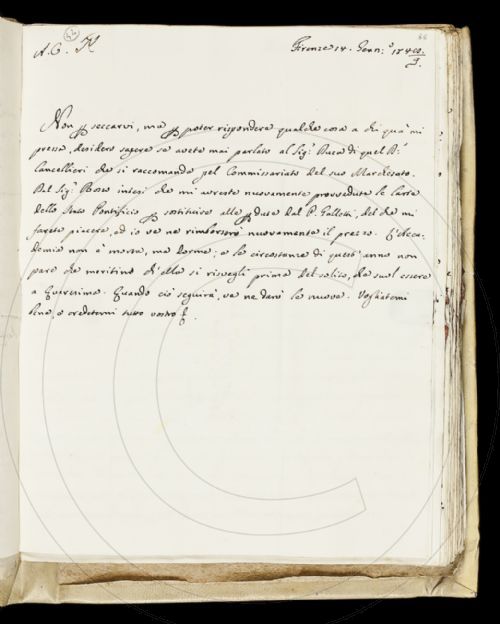 A. C. K
Firenze 14. Genn:o
Non per seccarvi, ma per poter rispondere qualche cosa a chi quà mi
pressa, desidero sapere se avete mai parlato al Sig.r Duca di quel P.
Cancellieri che si raccomanda pel Commissariato del suo Marchesato.
Dal Sig.r Boso intesi che mi avreste nuovamente provvedute le carte
dello Stato Pontificio per sostituire alle perdute dal P. Galletti, del che mi
farete piacere, ed io ve ne rimborserò nuovamente il prezzo. L'Acca-
demia non è morta, ma dorme, e le circostanze di quest'anno non
pare che meritino ch'ella si risvegli prima del solito, che suol essere
a Quaresima. Quando ciò seguirà, ve ne darò le nuove. Vogliatemi
bene, e credetemi tutto vostro